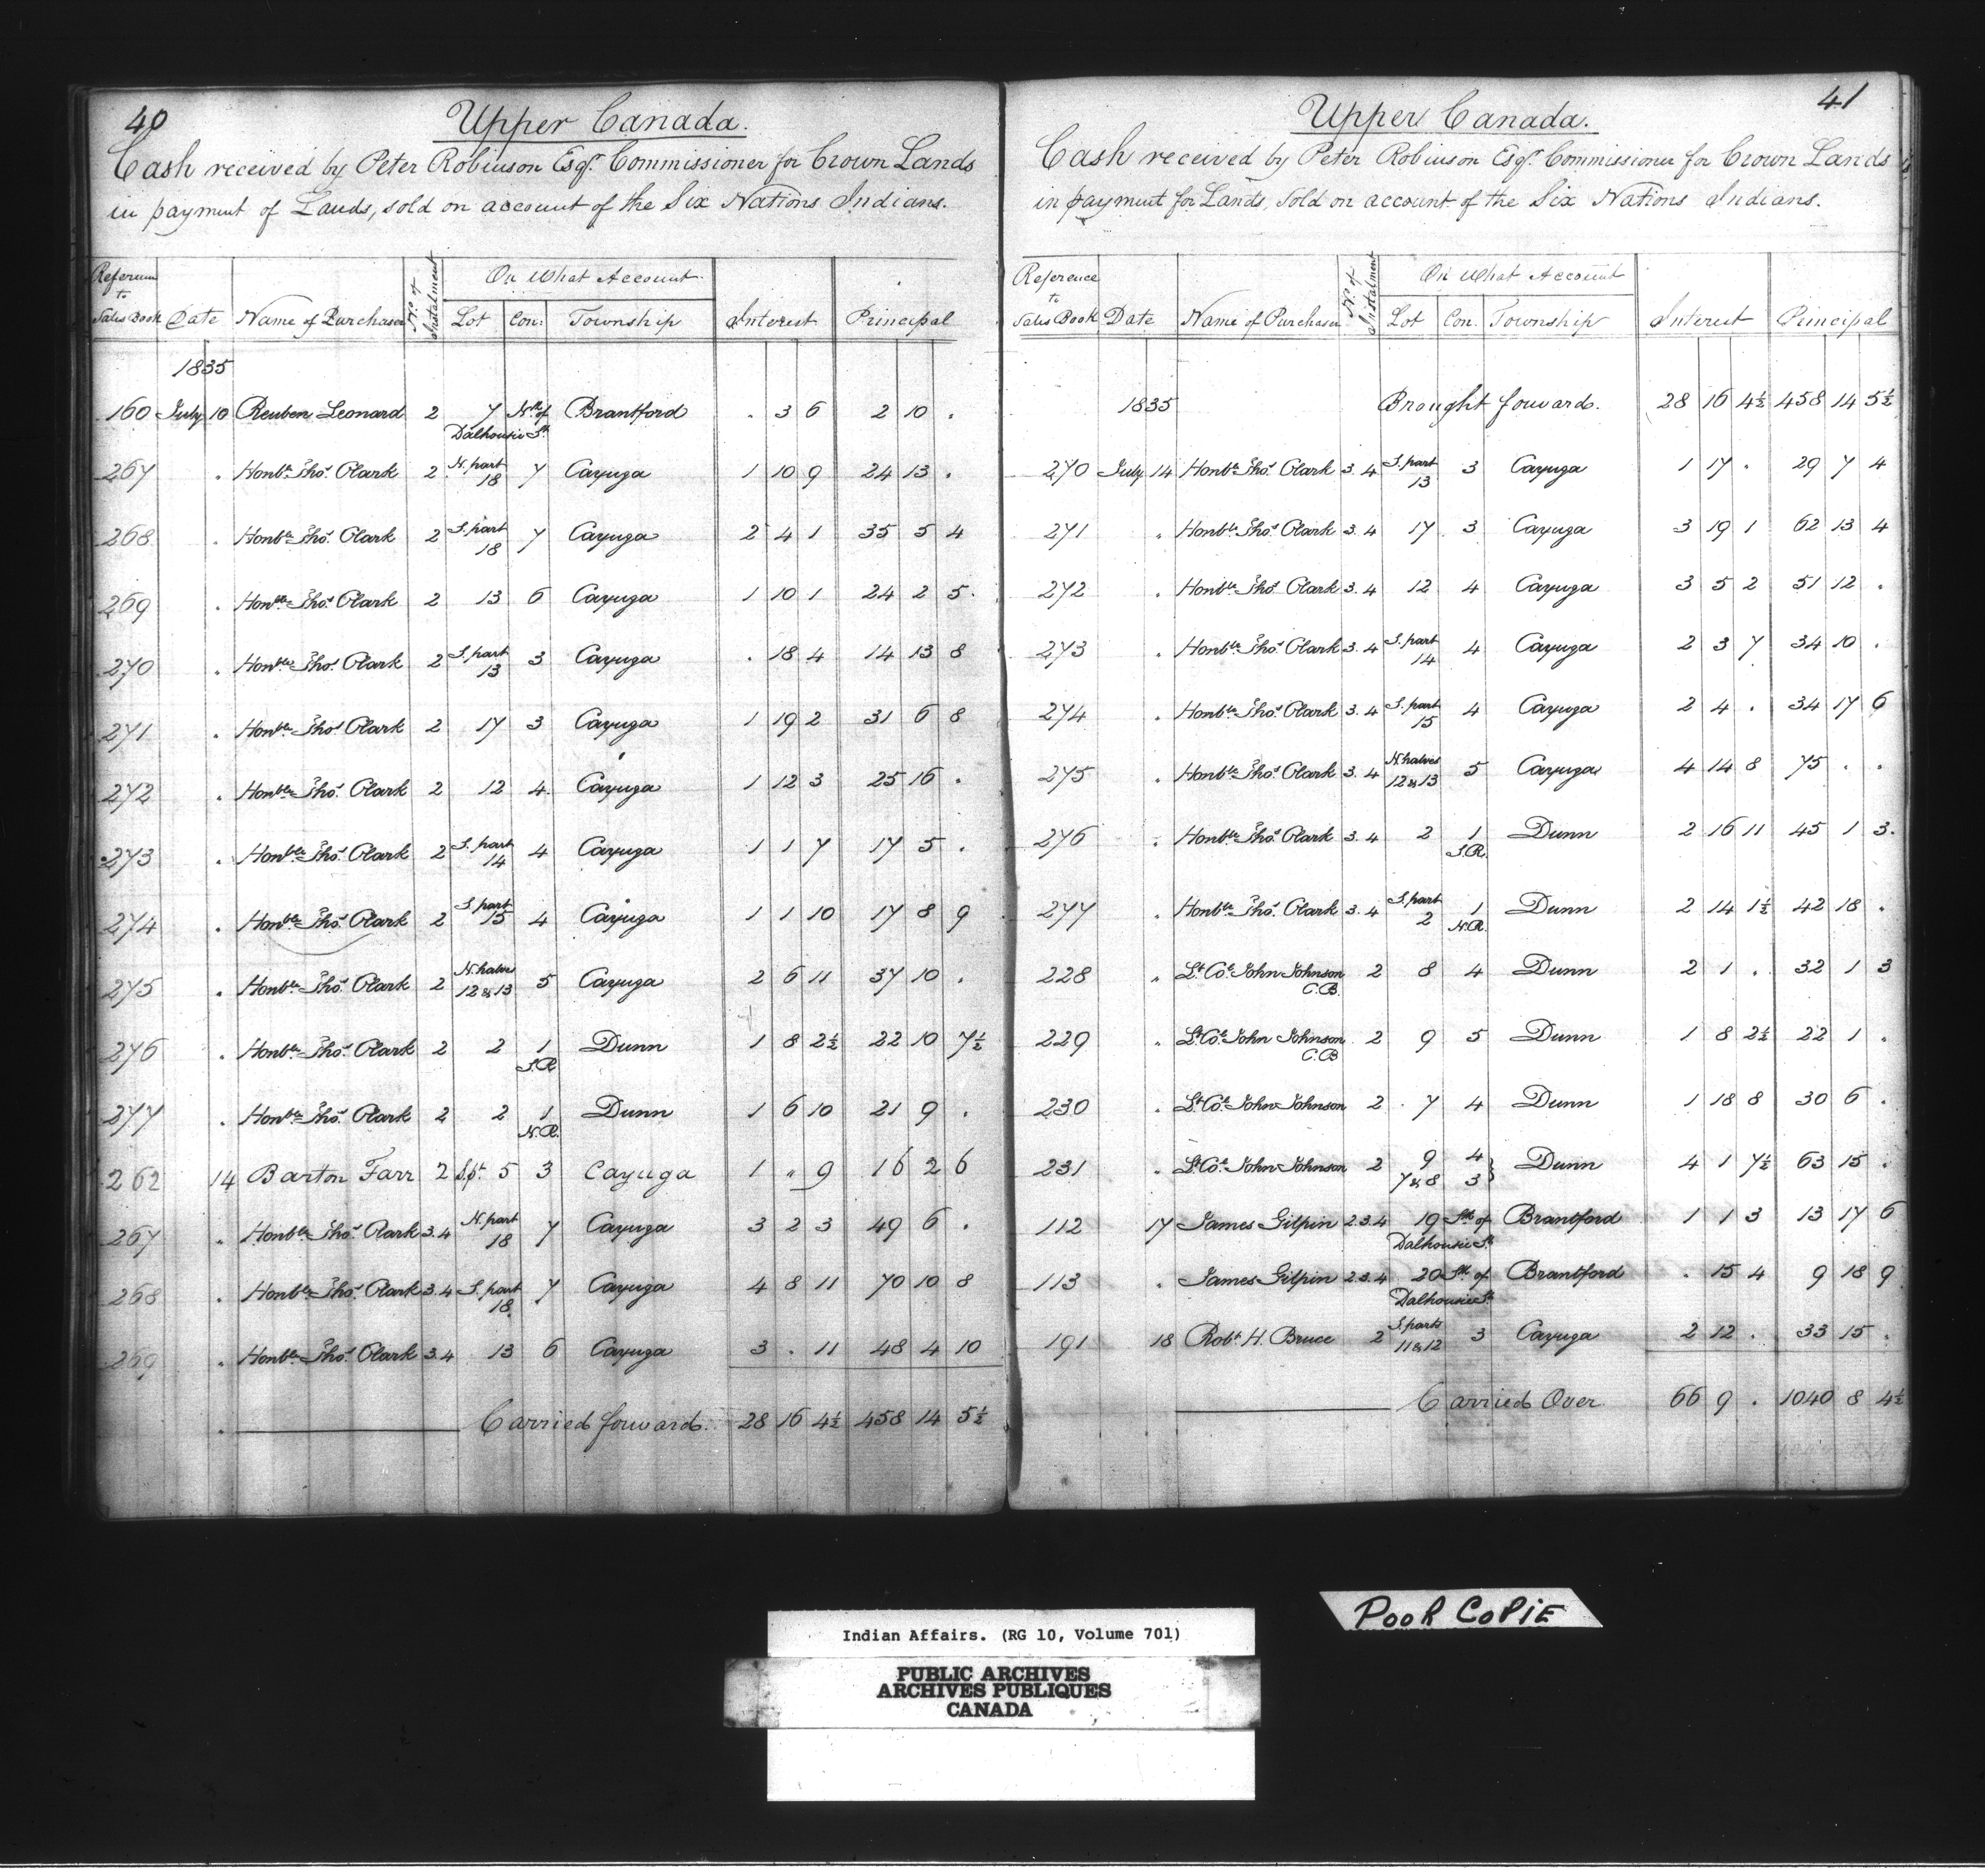 40
Upper Canada.
Cash received by Peter Robinson Esqr. Commissioner for Crown Lands
in payment of Lands, sold on account of the Six Nations Indians.
Reference to Sales Book Date Name of Purchaser No. of Instalment On What Account Interest Principal
Lot Con: Township
1835
160 July 10 Reuben Leonard 2 7 Nth of Brantford . 3 6 2 10 .
Dalhousie St.
267 . Honble Thos. Clark 2 N. part 18 7 Cayuga 1 10 9 24 13 .
268 . Honble Thos. Clark 2 S. part 18 7 Cayuga 2 4 1 35 5 4
269 . Honble Thos. Clark 2 13 6 Cayuga 1 10 1 24 2 5
270 . Honble Thos. Clark 2 S. part 13 3 Cayuga . 18 4 14 13 8
271 . Honble Thos. Clark 2 17 3 Cayuga 1 19 2 31 6 8
272 . Honble Thos. Clark 2 12 4 Cayuga 1 12 3 25 16 .
273 . Honble Thos. Clark 2 S. part 14 4 Cayuga 1 1 7 17 5 .
274 . Honble Thos. Clark 2 S. part 15 4 Cayuga 1 1 10 17 8 9
275 . Honble Thos. Clark 2 N. halves 12 & 13 5 Cayuga 2 6 11 37 10 .
276 . Honble Thos. Clark 2 2 1 S.R. Dunn 1 8 2½ 22 10 7½
277 . Honble Thos. Clark 2 2 1 N.R. Dunn 1 6 10 21 9 .
262 14 Barton Farr 2 S.pt. 5 3 Cayuga 1 " 9 16 2 6
267 " Honble Thos. Clark 3.4 N. part 18 7 Cayuga 3 2 3 49 6 .
268 . Honble Thos. Clark 3.4 S. part 18 7 Cayuga 4 8 11 70 10 8
269 . Honble Thos. Clark 3.4 13 6 Cayuga 3 . 11 48 4 10
Carried forward. 28 16 4½ 458 14 5½
41
Upper Canada.
Cash received by Peter Robinson Esqr. Commissioner for Crown Lands
in payment for Lands, Sold on account of the Six Nations Indians.
Reference to Sales Book Date Name of Purchaser No. of Instalment On What Account Interest Principal
Lot Con. Township
1835 Brought forward. 28 16 4½ 458 14 5½
270 July 14 Honble Thos. Clark 3.4 S. part 13 3 Cayuga 1 17 . 29 7 4
271 " Honble Thos. Clark 3.4 17 3 Cayuga 3 19 1 62 13 4
272 . Honble Thos. Clark 3.4 12 4 Cayuga 3 5 2 51 12 .
273 . Honble Thos. Clark 3.4 S. part 14 4 Cayuga 2 3 7 34 10 .
274 . Honble Thos. Clark 3.4 S. part 15 4 Cayuga 2 4 . 34 17 6
275 . Honble Thos. Clark 3.4 N. halves 12 & 13 5 Cayuga 4 14 8 75 . .
276 . Honble Thos. Clark 3.4 2 1 S.R. Dunn 2 16 11 45 1 3.
277 . Honble Thos. Clark 3.4 S. part 2 1 N.R. Dunn 2 14 1½ 42 18 .
228 " Lt. Col. John Johnson C.B. 2 8 4 Dunn 2 1 . 32 1 3
229 " Lt. Col. John Johnson C.B. 2 9 5 Dunn 1 8 2½ 22 1 .
230 . Lt. Col. John Johnson 2 7 4 Dunn 1 18 8 30 6 .
231 . Lt. Col. John Johnson 2 9 4 Dunn 4 1 7½ 63 15 .
7 & 8 3
112 17 James Gilpin 2.3.4 19 Sth of Brantford 1 1 3 13 17 6
Dalhousie St.
113 . James Gilpin 2.3.4 20 Sth of Brantford . 15 4 9 18 9
Dalhousie St.
191 18 Robt. H. Bruce 2 S. parts 11 & 12 3 Cayuga 2 12 . 33 15 .
Carried Over 66 9 . 1040 8 4½
POOR COPIE
Indian Affairs. (RG 10, Volume 701)
PUBLIC ARCHIVES
ARCHIVES PUBLIQUES
CANADA